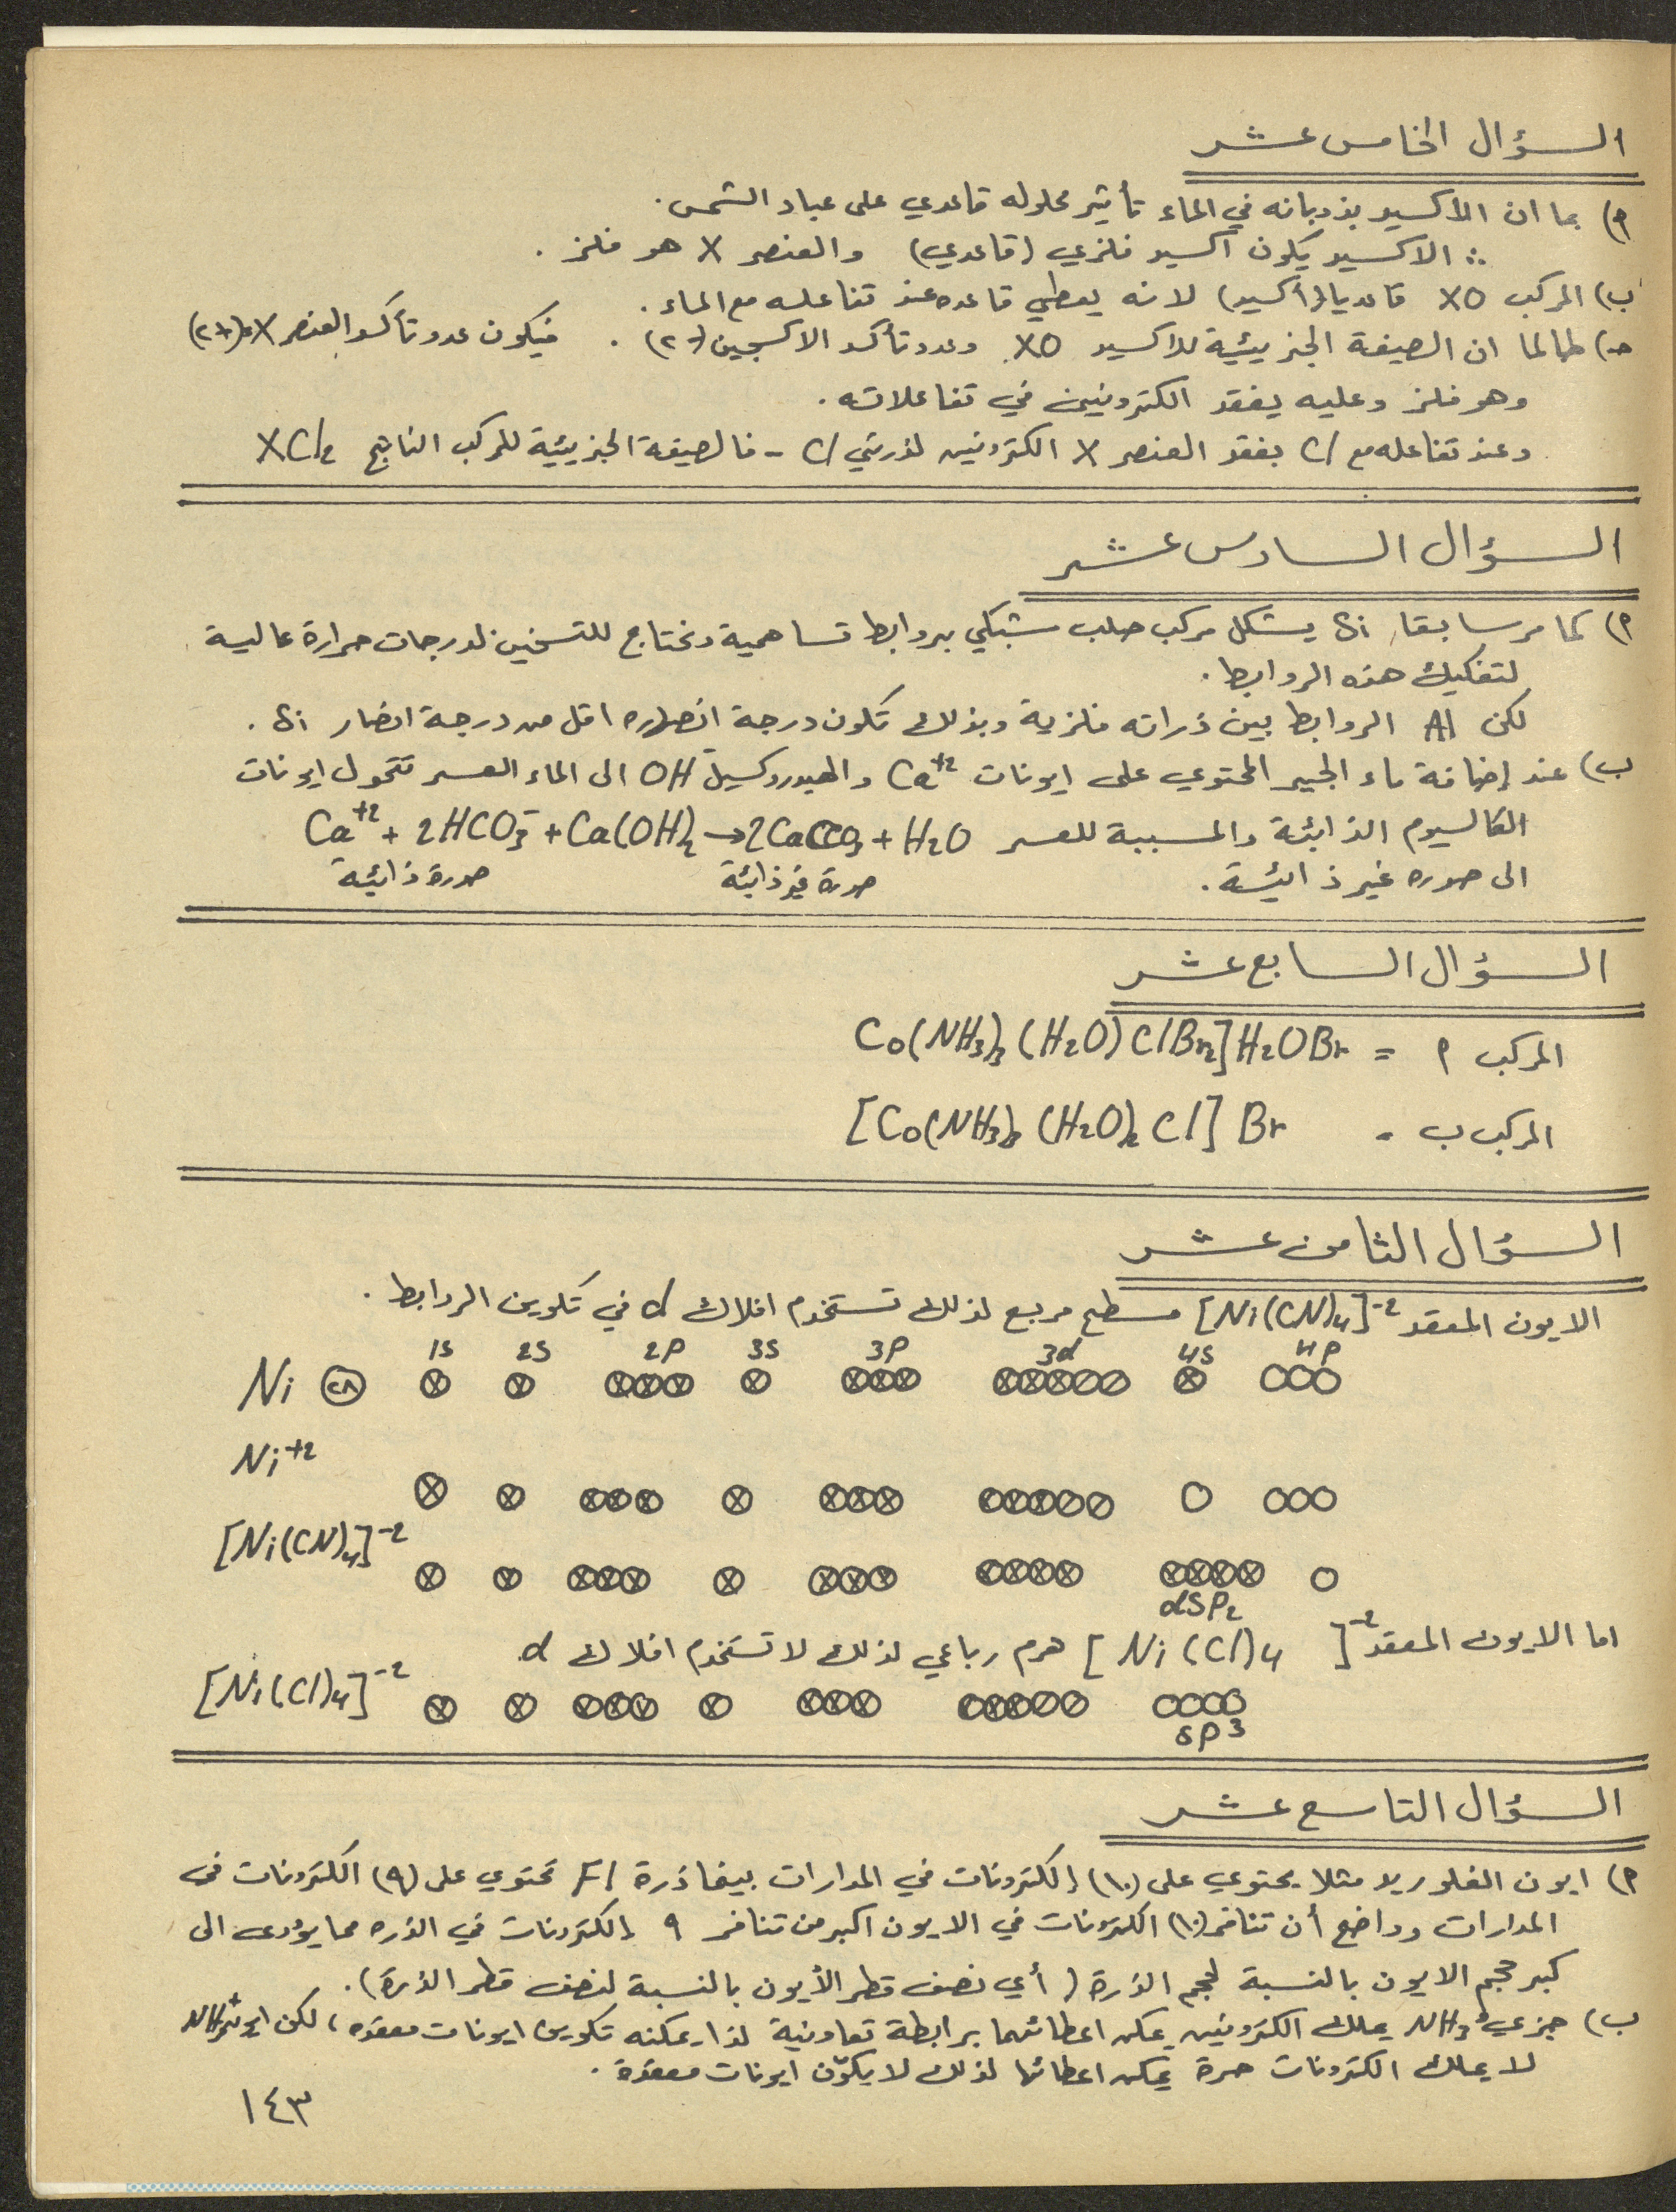 السؤال الخامس عشر
أ) بما ان الأكسيد بذوبانه في الماء تأثير محلوله قاعدي على عباد الشمس.
∴ الاكسيد يكون أكسيد فلزي (قاعدي) والعنصر X هو فلز.
ب) المركب XO قاعديا (أكسيد) لانه يعطي قاعده عند تفاعله مع الماء.
جـ) طالما ان الصيغة الجزيئية للاكسيد XO وعدد تأكسد الاكسجين (-٢). فيكون عدد تأكسد العنصر X (+٢)
وهو فلز وعليه يفقد الكترونين في تفاعلاته.
وعند تفاعله مع Cl يفقد العنصر X الكترونين لذرتي Cl - فالصيغة الجزيئية للمركب الناتج XCl2
السؤال السادس عشر
أ) كما مر سابقا، Si يشكل مركب صلب شبكي بروابط تساهمية ونحتاج للتسخين لدرجات حرارة عالية
لتفكيك هذه الروابط.
لكن Al الروابط بين ذراته فلزية وبذلك تكون درجة انصهاره اقل من درجة انصهار Si.
ب) عند إضافة ماء الجير المحتوي على ايونات Ca+2 والهيدروكسيل OH- الى الماء العسر تتحول ايونات
الكالسيوم الذائبة والمسببة للعسر Ca+2 + 2HCO3- + Ca(OH)2 → 2CaCO3 + H2O
الى صوره غير ذائبة. صورة غير ذائبة صورة ذائبة
السؤال السابع عشر
المركب أ = Co(NH3)3 (H2O) ClBr2] H2OBr
المركب ب = [Co(NH3)3 (H2O)2 Cl] Br
السؤال الثامن عشر
الايون المعقد [Ni(CN)4]-2 مسطح مربع لذلك تستخدم افلاك d في تكوين الروابط.
1S 2S 2P 3S 3P 3d 4S 4P
Ni ٢٨
Ni+2
[Ni(CN)4]-2
dSP2
اما الايون المعقد [Ni(Cl)4]-2 هرم رباعي لذلك لا تستخدم افلاك d.
[Ni(Cl)4]-2
SP3
السؤال التاسع عشر
أ) ايون الفلوريد مثلا يحتوي على (١٠) إلكترونات في المدارات بينما ذرة Fl تحتوي على (٩) الكترونات في
المدارات وواضح أن تنافر (١٠) الكترونات في الايون اكبر من تنافر ٩ إلكترونات في الذره مما يؤدى الى
كبر حجم الايون بالنسبة لحجم الذرة (أي نصف قطر الأيون بالنسبة لنصف قطر الذرة).
ب) جزيء NH3 يملك الكترونين يمكن اعطائهما برابطة تعاونية لذا يمكنه تكوين ايونات معقده، لكن ايون NH4+
لا يملك الكترونات حرة يمكن اعطائها لذلك لا يكوّن ايونات معقدة.
١٤٣